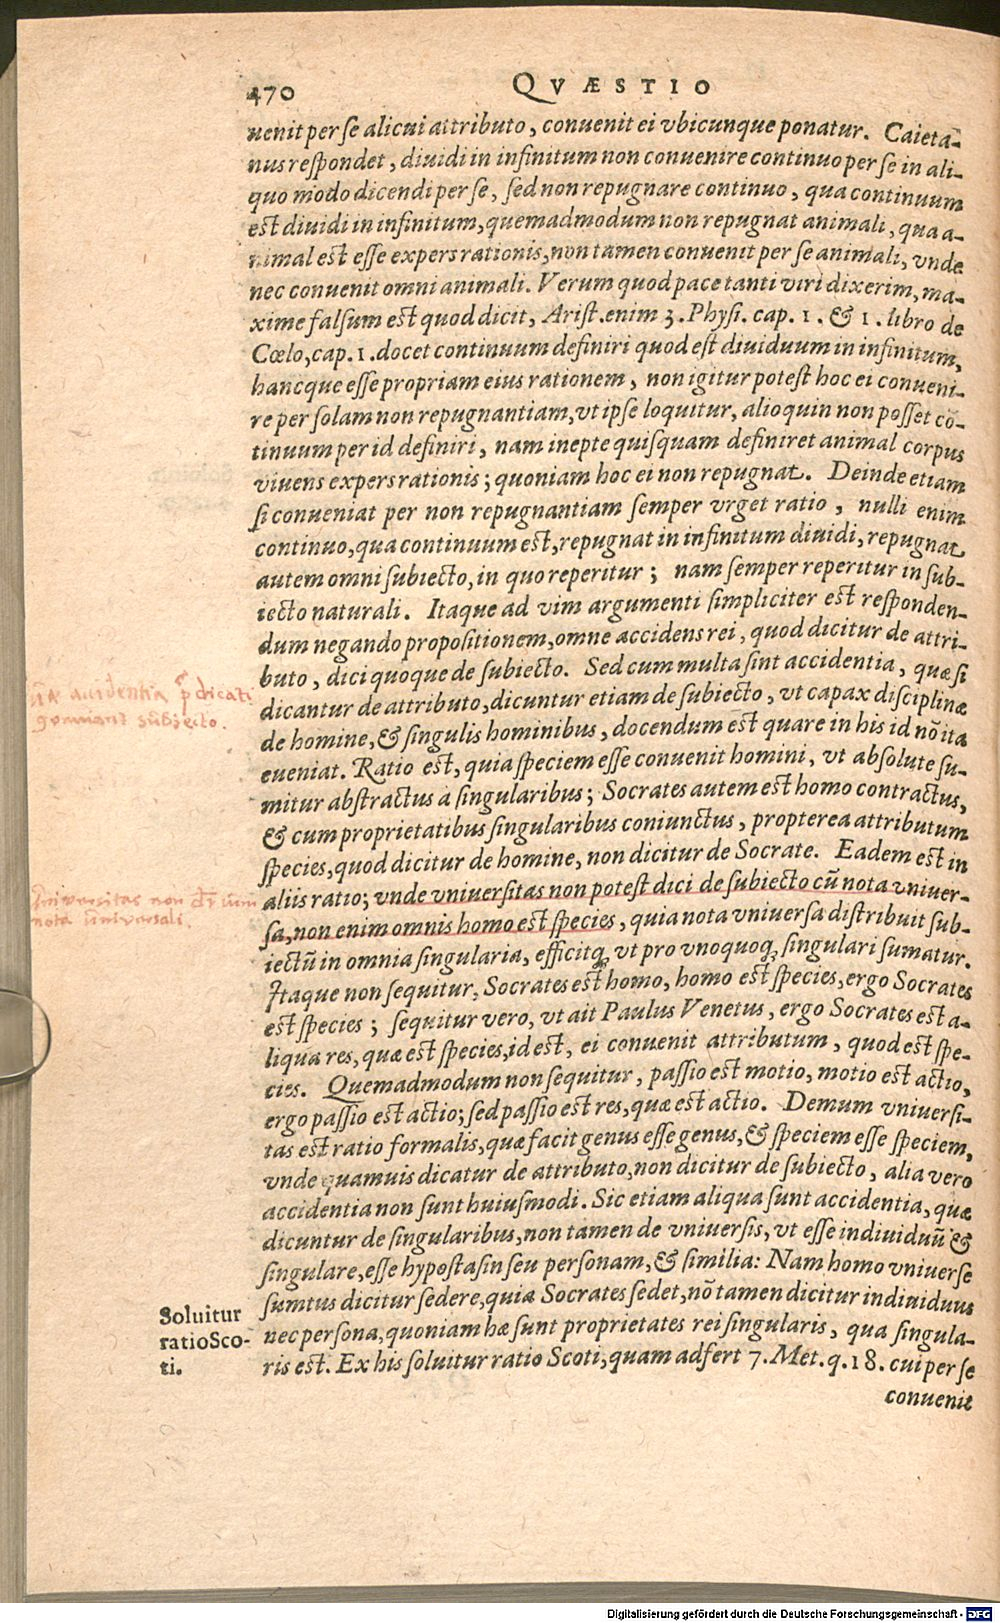 470 QVÆSTIO
uenit per se alicui attributo, conuenit ei vbicunque ponatur. Caieta-
nus respondet, diuidi in infinitum non conuenire continuo per se in ali-
quo modo dicendi per se, sed non repugnare continuo, qua continuum
est diuidi in infinitum, quemadmodum non repugnat animali, qua a-
nimal est esse expers rationis, non tamen conuenit per se animali, vnde
nec conuenit omni animali. Verum quod pace tanti viri dixerim, ma-
xime falsum est quod dicit, Arist. enim 3. Physi. cap. 1. & 1. libro de
Cœlo, cap. 1. docet continuum definiri quod est diuiduum in infinitum,
hancque esse propriam eius rationem, non igitur potest hoc ei conueni-
re per solam non repugnantiam, vt ipse loquitur, alioquin non posset cõ-
tinuum per id definiri, nam inepte quisquam definiret animal corpus
viuens expers rationis; quoniam hoc ei non repugnat. Deinde etiam
si conueniat per non repugnantiam semper vrget ratio, nulli enim
continuo, qua continuum est, repugnat in infinitum diuidi, repugnat
autem omni subiecto, in quo reperitur; nam semper reperitur in sub-
iecto naturali. Itaque ad vim argumenti simpliciter est responden-
dum negando propositionem, omne accidens rei, quod dicitur de attri-
buto, dici quoque de subiecto. Sed cum multa sint accidentia, quæ si
dicantur de attributo, dicuntur etiam de subiecto, vt capax disciplinæ
de homine, & singulis hominibus, docendum est quare in his id nõ ita
eueniat. Ratio est, quia speciem esse conuenit homini, vt absolute su-
mitur abstractus a singularibus; Socrates autem est homo contractus,
& cum proprietatibus singularibus coniunctus, propterea attributum
species, quod dicitur de homine, non dicitur de Socrate. Eadem est in
aliis ratio; vnde vniuersitas non potest dici de subiecto cũ nota vniuer-
sa, non enim omnis homo est species, quia nota vniuersa distribuit sub-
iectũ in omnia singularia, efficitq́; vt pro vnoquoq; singulari sumatur.
Itaque non sequitur, Socrates est homo, homo est species, ergo Socrates
est species; sequitur vero, vt ait Paulus Venetus, ergo Socrates est a-
liqua res, quæ est species, id est, ei conuenit attributum, quod est spe-
cies. Quemadmodum non sequitur, passio est motio, motio est actio,
ergo passio est actio; sed passio est res, quæ est actio. Demum vniuersi-
tas est ratio formalis, quæ facit genus esse genus, & speciem esse speciem,
vnde quamuis dicatur de attributo, non dicitur de subiecto, alia vero
accidentia non sunt huiusmodi. Sic etiam aliqua sunt accidentia, quæ
dicuntur de singularibus, non tamen de vniuersis, vt esse indiuiduũ &
singulare, esse hypostasin seu personam, & similia: Nam homo vniuerse
sumtus dicitur sedere, quia Socrates sedet, nõ tamen dicitur indiuiduus
nec persona, quoniam hæ sunt proprietates rei singularis, qua singula-
ris est. Ex his soluitur ratio Scoti, quam adfert 7. Met. q. 18. cui per se
conuenit
accidentia p̃dicati
subjecto.
Vniversitas non
nota universali.
Soluitur
ratio Sco-
ti.
Digitalisierung gefördert durch die Deutsche Forschungsgemeinschaft - DFG